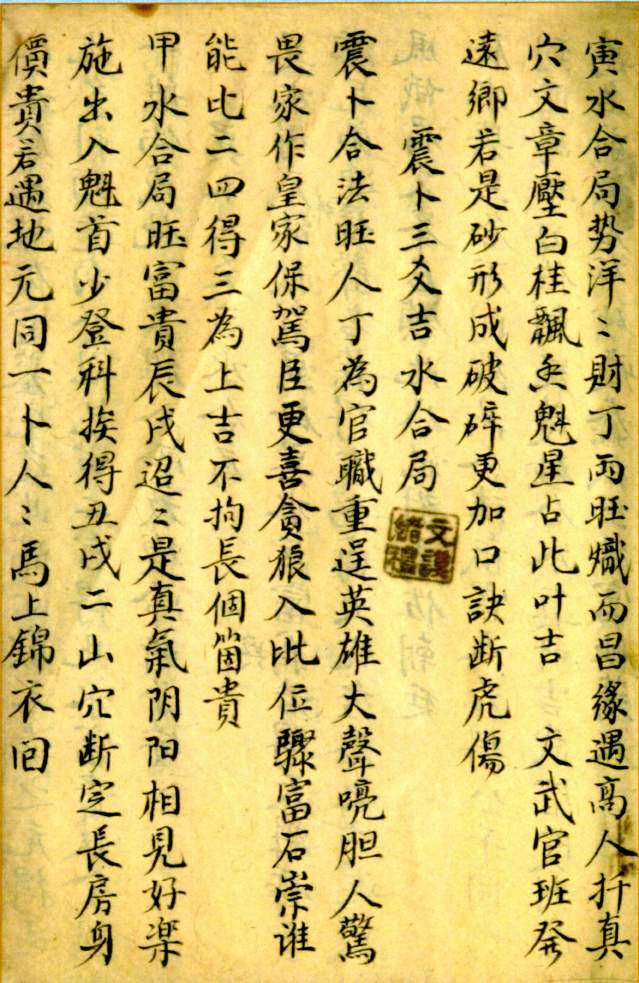 寅水合局势洋〻財丁両旺熾而昌緣遇高人扦真
穴文章壓白桂飄香魁星占此叶吉　文武官班發
遠鄉若是砂形成破碎更加口訣断虎傷
震卜三爻吉水合局
震卜合法旺人丁為官職重逞英雄大聲喨胆人驚
畏家作皇家保駕臣更喜貪狼入此位驟富石崇谁
能比二四得三為上吉不拘長個箇貴
甲水合局旺富貴辰戌迢〻是真氣阴阳相見好楽
施出入魁首少登科挨得丑戌二山穴断定長房身
價貴若遇地元同一卜人〻馬上錦衣回